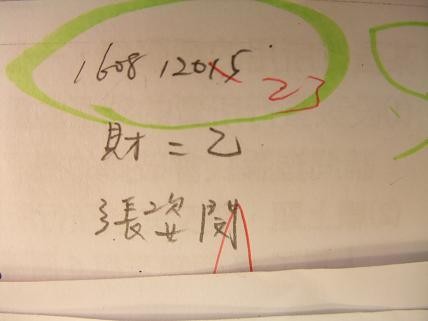 160812045
23
財=乙
張姿閔